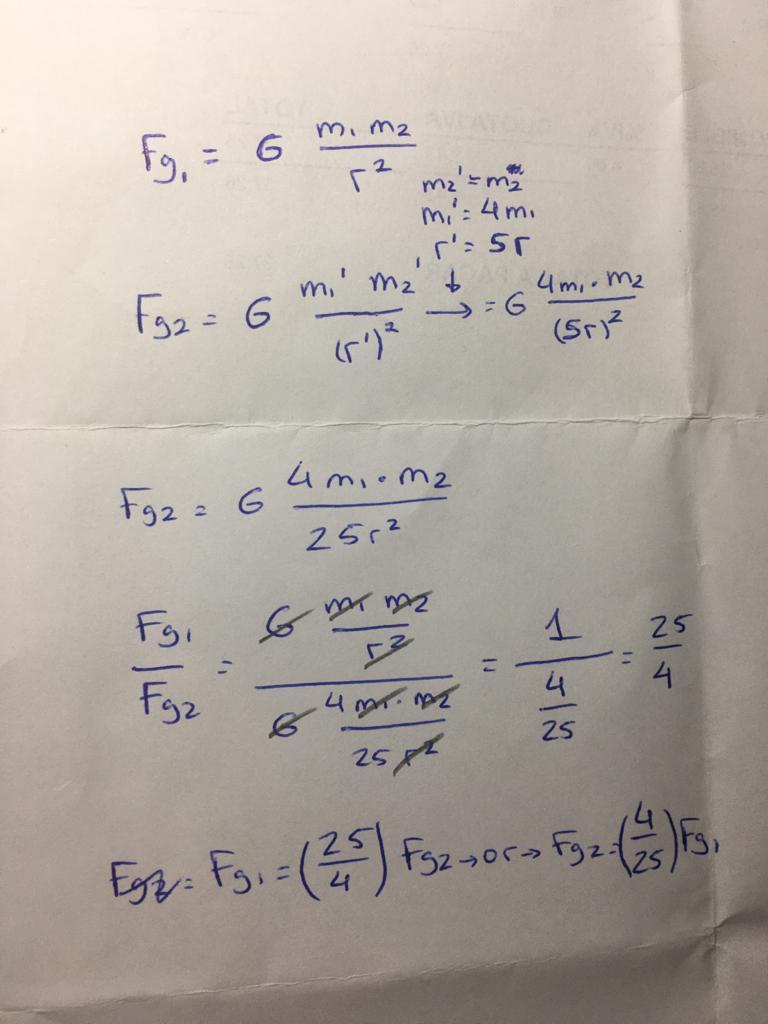 Fg₁ = G m₁ m₂ / r²
m₂' = m₂
m₁' = 4m₁
r' = 5r
Fg2 = G m₁' m₂' / (r')² ↓ → = G 4m₁ · m₂ / (5r)²
Fg2 = G 4m₁ · m₂ / 25r²
Fg₁ / Fg2 = (G m₁ m₂ / r²) / (G 4m₁ · m₂ / 25r²) = 1 / (4/25) = 25/4
Fg₁ = (25/4) Fg2 → or → Fg2 = (4/25) Fg₁